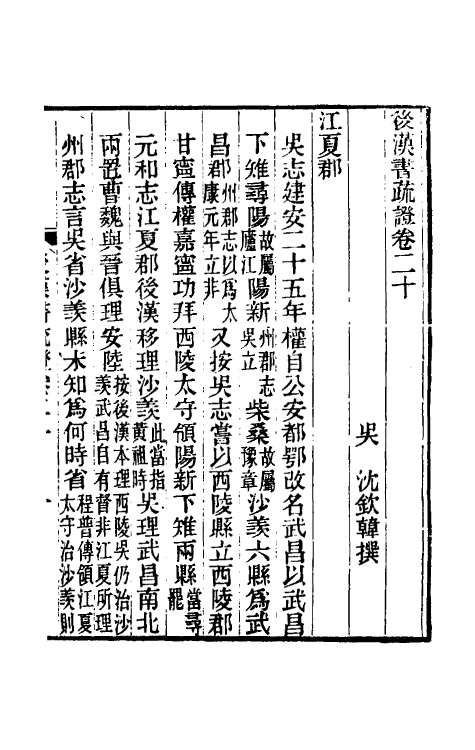 後漢書疏證卷二十
吳 沈欽韓撰
江夏郡
吳志建安二十五年權自公安都鄂改名武昌以武昌
下雉尋陽故屬廬江陽新州郡志吳立柴桑故屬豫章沙羡六縣爲武
昌郡州郡志以爲太康元年立非又按吳志嘗以西陵縣立西陵郡
甘寧傳權嘉寧功拜西陵太守領陽新下雉兩縣當尋罷
元和志江夏郡後漢移理沙羡此當指黃祖時吳理武昌南北
兩置曹魏與晉俱理安陸按後漢本理西陵吳仍治沙羡武昌自有督非江夏所理
州郡志言吳省沙羡縣未知爲何時省程普傳領江夏太守治沙羡則